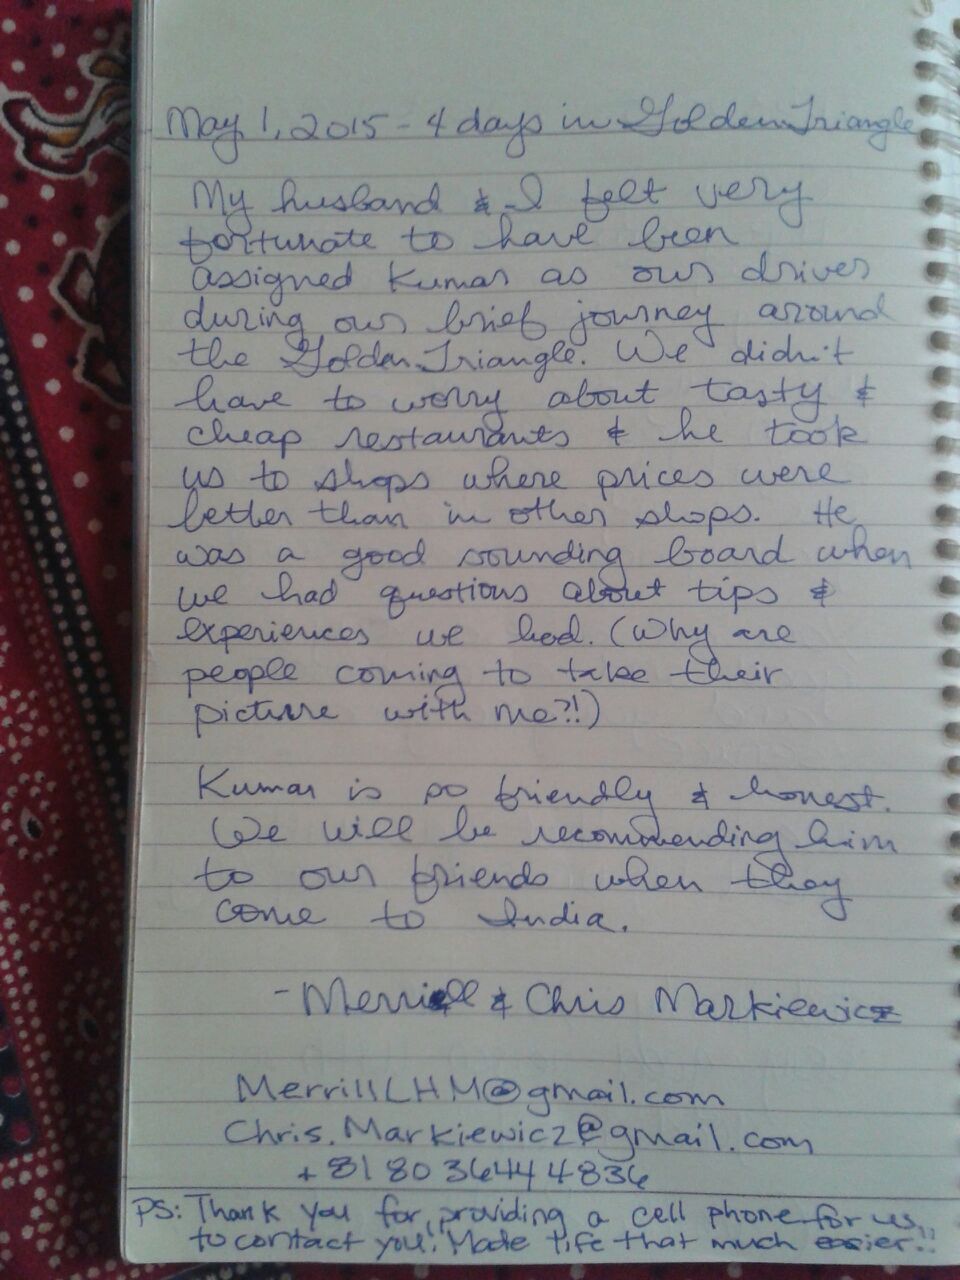 May 1, 2015 - 4 days in Golden Triangle
My husband & I felt very
fortunate to have been
assigned Kumar as our driver
during our brief journey around
the Golden Triangle. We didn't
have to worry about tasty &
cheap restaurants & he took
us to shops where prices were
better than in other shops. He
was a good sounding board when
we had questions about tips &
experiences we had. (Why are
people coming to take their
picture with me?!)
Kumar is so friendly & honest.
We will be recommending him
to our friends when they
come to India.
- Merrill & Chris Markiewicz
MerrillLHM@gmail.com
Chris.Markiewicz@gmail.com
+81 80 3644 4836
PS: Thank you for providing a cell phone for us
to contact you! Made life that much easier!!